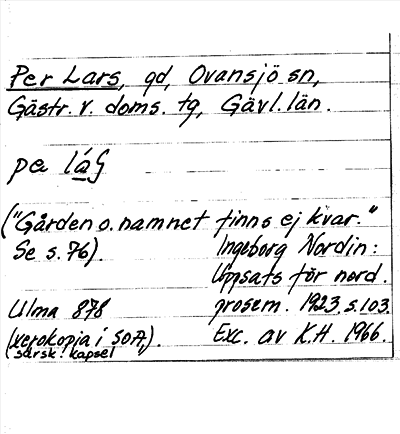 Per Lars, gd, Ovansjö sn,
Gästr. v. doms. tg, Gävl. län.
pɐ láʂ
("Gården o. namnet finns ej kvar."
Se s. 76).
Ingeborg Nordin:
Uppsats för nord.
prosem. 1923. s. 103.
Exc. av K.H. 1966.
Ulma 878
(xerokopia i SOA,).
särsk. kapsel